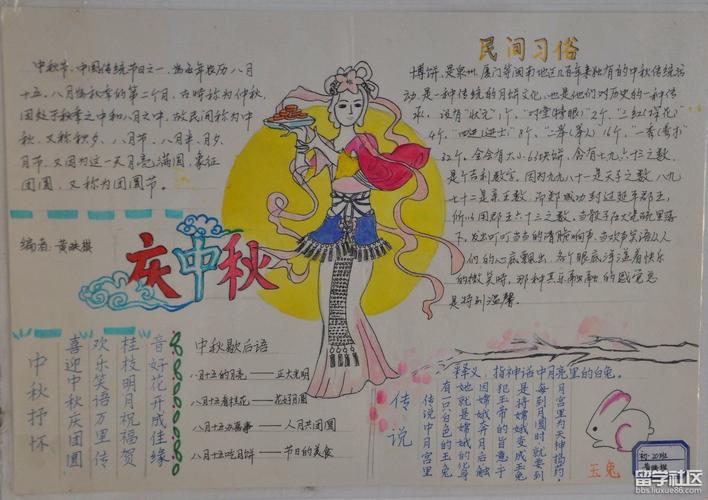 中秋节，中国传统节日之一，为每年农历八月
十五，八月为秋季的第二个月，古时称为仲秋，
因处于秋季之中和八月之中，故民间称为中
秋，又称秋夕、八月节、八月半、月夕、
月节，又因为这一天月亮满圆，象征
团圆，又称为团圆节。
编者：黄
庆中秋
民间习俗
博饼，是泉州、厦门等闽南地区几百年来独有的中秋传统活
动，是一种传统的月饼文化，也是他们对历史的一种传
承，设有“状元”1个，“对堂”2个，“三红”
4个，“四进（进士）”8个，“二举（举人）”16个，“一秀（秀才）”
32个，全会有大小63块饼，含有七九六十三之数，
是个吉利数字，因为九九八十一是天子之数，八九
七十二是亲王数，而郑成功封过延平郡王，
所以用郡王六十三之数，当骰子在大瓷碗里落
下，发出叮叮当当的清脆响声，当欢声笑语从人
们的心底飘出，各个眼底洋溢着快乐
的微笑时，那种其乐融融的感觉总
是特别温馨。
中秋抒怀
喜迎中秋庆团圆
欢乐笑语万里传
桂枝明月祝福贺
音好花开成佳缘
中秋歇后语
八月十五的月亮——正大光明
八月十五看桂花——花好月圆
八月十五办喜事——人月共团圆
八月十五吃月饼——节日的美食
传说
释义：指神话中月亮里的白兔。
传说中月宫里
有一只白色的玉兔
她就是嫦娥的化身
因嫦娥奔月后触
犯玉帝的旨意于
是将嫦娥变成玉兔
每到月圆时就要到
月宫里为天神捣药
玉兔
初一20班
留学社区
bbs.liuxue86.com